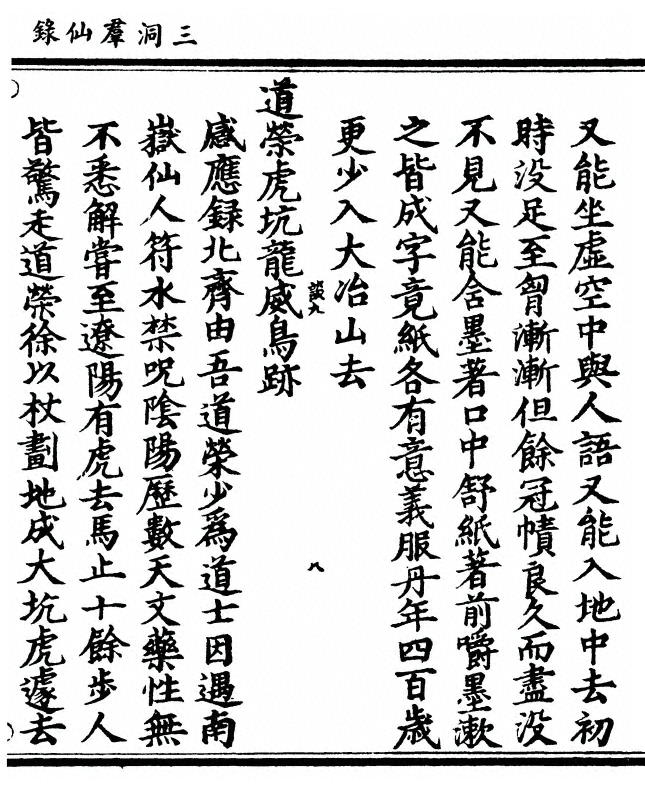 三洞羣仙錄
又能坐虛空中與人語又能入地中去初
時没足至胷漸漸但餘冠幘良久而盡没
不見又能含墨著口中舒紙著前嚼墨漱
之皆成字竟紙各有意義服丹年四百歲
更少入大冶山去
談九
八
道榮虎坑龍威鳥跡
感應録北齊由吾道榮少爲道士因遇南
嶽仙人符水禁呪陰陽歷數天文藥性無
不悉解嘗至遼陽有虎去馬止十餘步人
皆驚走道榮徐以杖劃地成大坑虎遽去